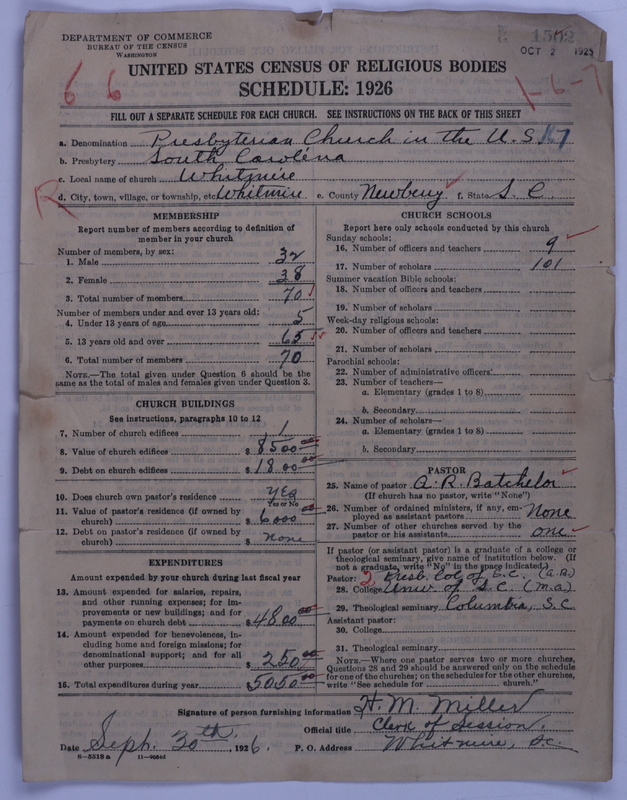 DEPARTMENT OF COMMERCE
BUREAU OF THE CENSUS
WASHINGTON
OCT 2 1926
UNITED STATES CENSUS OF RELIGIOUS BODIES
SCHEDULE: 1926
6 6
1-6-7
FILL OUT A SEPARATE SCHEDULE FOR EACH CHURCH. SEE INSTRUCTIONS ON THE BACK OF THIS SHEET
a. Denomination Presbyterian Church in the U.S. 167
b. Presbytery South Carolina
c. Local name of church Whitmire
R
d. City, town, village, or township, etc. Whitmire e. County Newberry f. State S. C.
MEMBERSHIP
Report number of members according to definition of
member in your church
Number of members, by sex:
1. Male 32
2. Female 38
3. Total number of members 70
Number of members under and over 13 years old:
4. Under 13 years of age 5
5. 13 years old and over 65
6. Total number of members 70
NOTE.—The total given under Question 6 should be the
same as the total of males and females given under Question 3.
CHURCH BUILDINGS
See instructions, paragraphs 10 to 12
7. Number of church edifices 1
8. Value of church edifices $ 8500 00
9. Debt on church edifices $ 1800 00
10. Does church own pastor's residence yes
Yes or No
11. Value of pastor's residence (if owned by
church) $ 6000 00
12. Debt on pastor's residence (if owned by
church) $ none
EXPENDITURES
Amount expended by your church during last fiscal year
13. Amount expended for salaries, repairs,
and other running expenses; for im-
provements or new buildings; and for
payments on church debt $ 4800 00
14. Amount expended for benevolences, in-
cluding home and foreign missions; for
denominational support; and for all
other purposes $ 250 00
15. Total expenditures during year $ 5050 00
CHURCH SCHOOLS
Report here only schools conducted by this church
Sunday schools:
16. Number of officers and teachers 9
17. Number of scholars 101
Summer vacation Bible schools:
18. Number of officers and teachers
19. Number of scholars
Week-day religious schools:
20. Number of officers and teachers
21. Number of scholars
Parochial schools:
22. Number of administrative officers
23. Number of teachers—
a. Elementary (grades 1 to 8)
b. Secondary
24. Number of scholars—
a. Elementary (grades 1 to 8)
b. Secondary
PASTOR
25. Name of pastor A. R. Batchelor
(If church has no pastor, write "None")
26. Number of ordained ministers, if any, em-
ployed as assistant pastors None
27. Number of other churches served by the
pastor or his assistants one
If pastor (or assistant pastor) is a graduate of a college or
theological seminary, give name of institution below. (If
not a graduate, write "No" in the space indicated.)
Pastor: 2 Presb. Col. of S.C. (A.B.)
28. College Univ. of S.C. (M.A.)
29. Theological seminary Columbia, S.C
Assistant pastor:
30. College
31. Theological seminary
NOTE.—Where one pastor serves two or more churches,
Questions 28 and 29 should be answered only on the schedule
for one of the churches; on the schedules for the other churches,
write "See schedule for church."
Signature of person furnishing information H. M. Miller
Official title Clerk of Session.
Date Sept. 30th, 1926. P. O. Address Whitmire, S.C.
8—5518 a